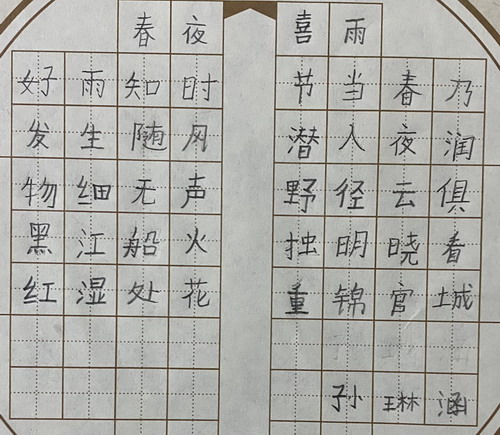 春夜喜雨
好雨知时节当春乃
发生随风潜入夜润
物细无声野径云俱
黑江船火独明晓看
红湿处花重锦官城
孙琳涵